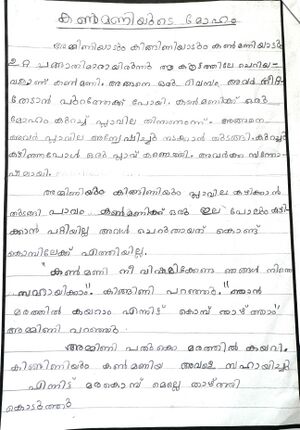 കൺമണിയുടെ മോഹം
അമ്മിണിയാടും കിങ്ങിണിയാടും കൺമണിയാടും
ഉറ്റ ചങ്ങാതിമാരായിരുന്നു ആ കൂട്ടത്തിലെ ചെറിയ-
വളാണ് കൺമണി. അങ്ങനെ ഒരു ദിവസം അവർ തീറ്റ
തേടാൻ പുറത്തേക്ക് പോയി. കൺമണിക്ക് ഒരു
മോഹം കുറച്ച് പ്ലാവില തിന്നണമെന്ന്. അങ്ങനെ
അവർ പ്ലാവില അന്വേഷിച്ചു നടക്കാൻ തുടങ്ങി. കുറച്ചു
കഴിഞ്ഞപ്പോൾ ഒരു പ്ലാവ് കണ്ടെത്തി. അവർക്കു സന്തോ-
ഷമായി.
അമ്മിണിയും കിങ്ങിണിയും പ്ലാവില കഴിക്കാൻ
തുടങ്ങി പാവം കൺമണിക്ക് ഒരു ഇല പോലും കടി-
ക്കാൻ പറ്റിയില്ല അവൾ ചെറുതായത് കൊണ്ട്
കൊമ്പിലേക്ക് എത്തിയില്ല.
"കൺമണി നീ വിഷമിക്കേണ്ട ഞങ്ങൾ നിന്നെ
സഹായിക്കാം". കിങ്ങിണി പറഞ്ഞു. "ഞാൻ
മരത്തിൽ കയറാം എന്നിട്ട് കൊമ്പ് താഴ്ത്താം"
അമ്മിണി പറഞ്ഞു.
അമ്മിണി പതുക്കെ മരത്തിൽ കയറി.
കിങ്ങിണിയും കൺമണിയും അവളെ സഹായിച്ചു
എന്നിട്ട് മരകൊമ്പ് മെല്ലെ താഴ്ത്തി
കൊടുത്തു